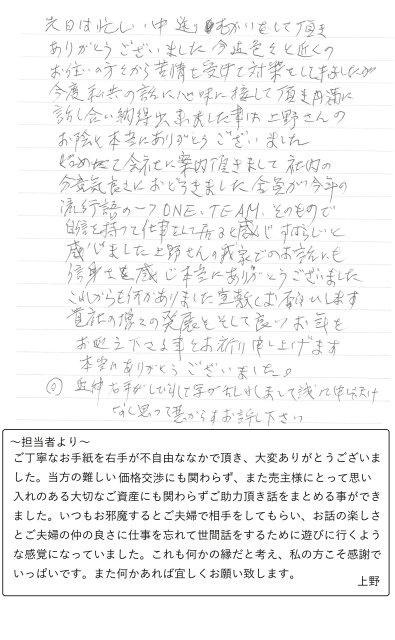 先日は忙しい中送りむかいをして頂き
ありがとうございました 今迄色々と近くの
お住いの方々から苦情を受けて対策をしてきましたが
今度私共の話に地味に接して頂き円満に
話し合い納得出来ました事は上野さんの
お陰と本当にありがとうございました
始めて会社に案内頂きまして社内の
分囲気良さにおどろきました 全員が今年の
流行語の一つONE.TEAM.そのもので
自信を持って仕事をして居ると感じすばらしいと
感じました 上野さんの我家でのお話にも
信身さを感じ本当にありがとうございました
これからも何かありましたら宜敷くお願いします
貴社の増々の発展とそして良いお年を
お迎え下さる事をお祈り申し上げます
本当にありがとうございました。
右手がしびれて字が
思って悪からずお許し下さい
～担当者より～
ご丁寧なお手紙を右手が不自由ななかで頂き、大変ありがとうございま
した。当方の難しい価格交渉にも関わらず、また売主様にとって思い
入れのある大切なご資産にも関わらずご助力頂き話をまとめる事ができ
ました。いつもお邪魔するとご夫婦で相手をしてもらい、お話の楽しさ
とご夫婦の仲の良さに仕事を忘れて世間話をするために遊びに行くよう
な感覚になっていました。これも何かの縁だと考え、私の方こそ感謝で
いっぱいです。また何かあれば宜しくお願い致します。
上野